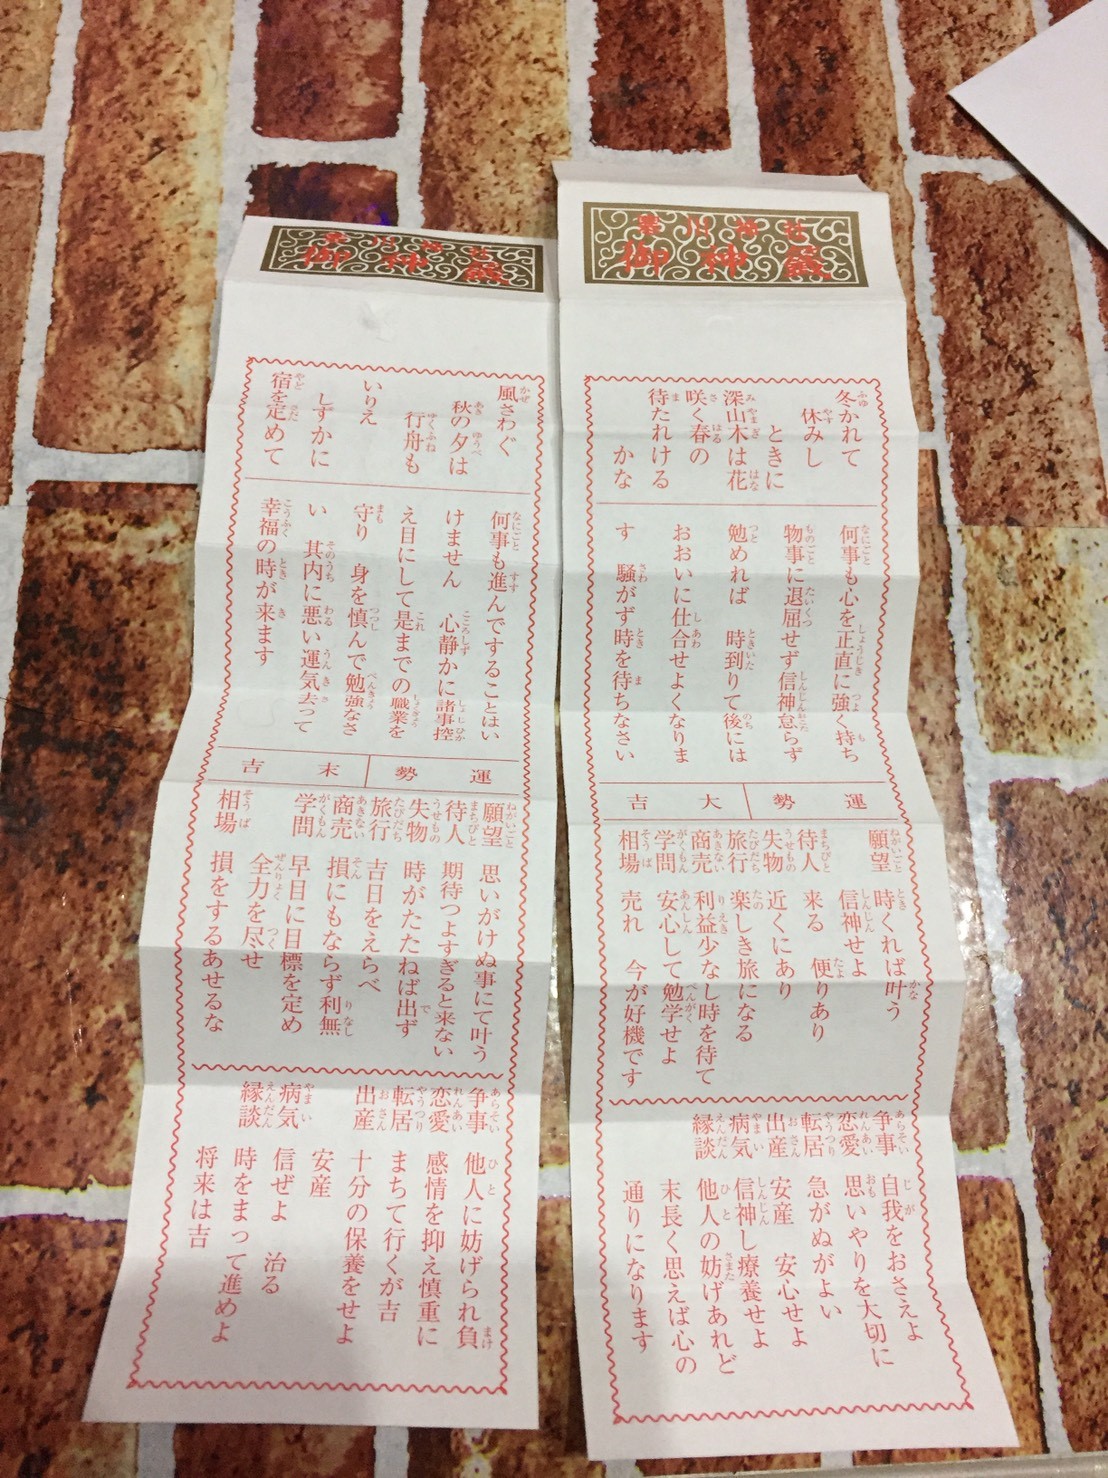 寒川神社
御神籤
冬かれて
休みし
ときに
深山木は花
咲く春の
待たれける
かな
何事も心を正直に強く持ち
物事に退屈せず信神怠らず
勉めれば 時到りて後には
おおいに仕合せよくなりま
す 騒がず時を待ちなさい
運勢 大吉
願望 時くれば叶う
信神せよ
待人 来る 便りあり
失物 近くにあり
旅行 楽しき旅になる
商売 利益少なし時を待て
学問 安心して勉学せよ
相場 売れ 今が好機です
争事 自我をおさえよ
恋愛 思いやりを大切に
転居 急がぬがよい
出産 安産 安心せよ
病気 信神し療養せよ
縁談 他人の妨げあれど
末長く思えば心の
通りになります
寒川神社
御神籤
風さわぐ
秋の夕は
行舟も
いりえ
しずかに
宿を定めて
何事も進んですることはい
けません 心静かに諸事控
え目にして是までの職業を
守り 身を慎んで勉強なさ
い 其内に悪い運気去って
幸福の時が来ます
運勢 末吉
願望 思いがけぬ事にて叶う
待人 期待つよすぎると来ない
失物 時がたたねば出ず
旅行 吉日をえらべ
商売 損にもならず利無
学問 早目に目標を定め
全力を尽せ
相場 損をするあせるな
争事 他人に妨げられ負
恋愛 感情を抑え慎重に
転居 まちて行くが吉
出産 十分の保養をせよ
安産
病気 信ぜよ 治る
縁談 時をまって進めよ
将来は吉